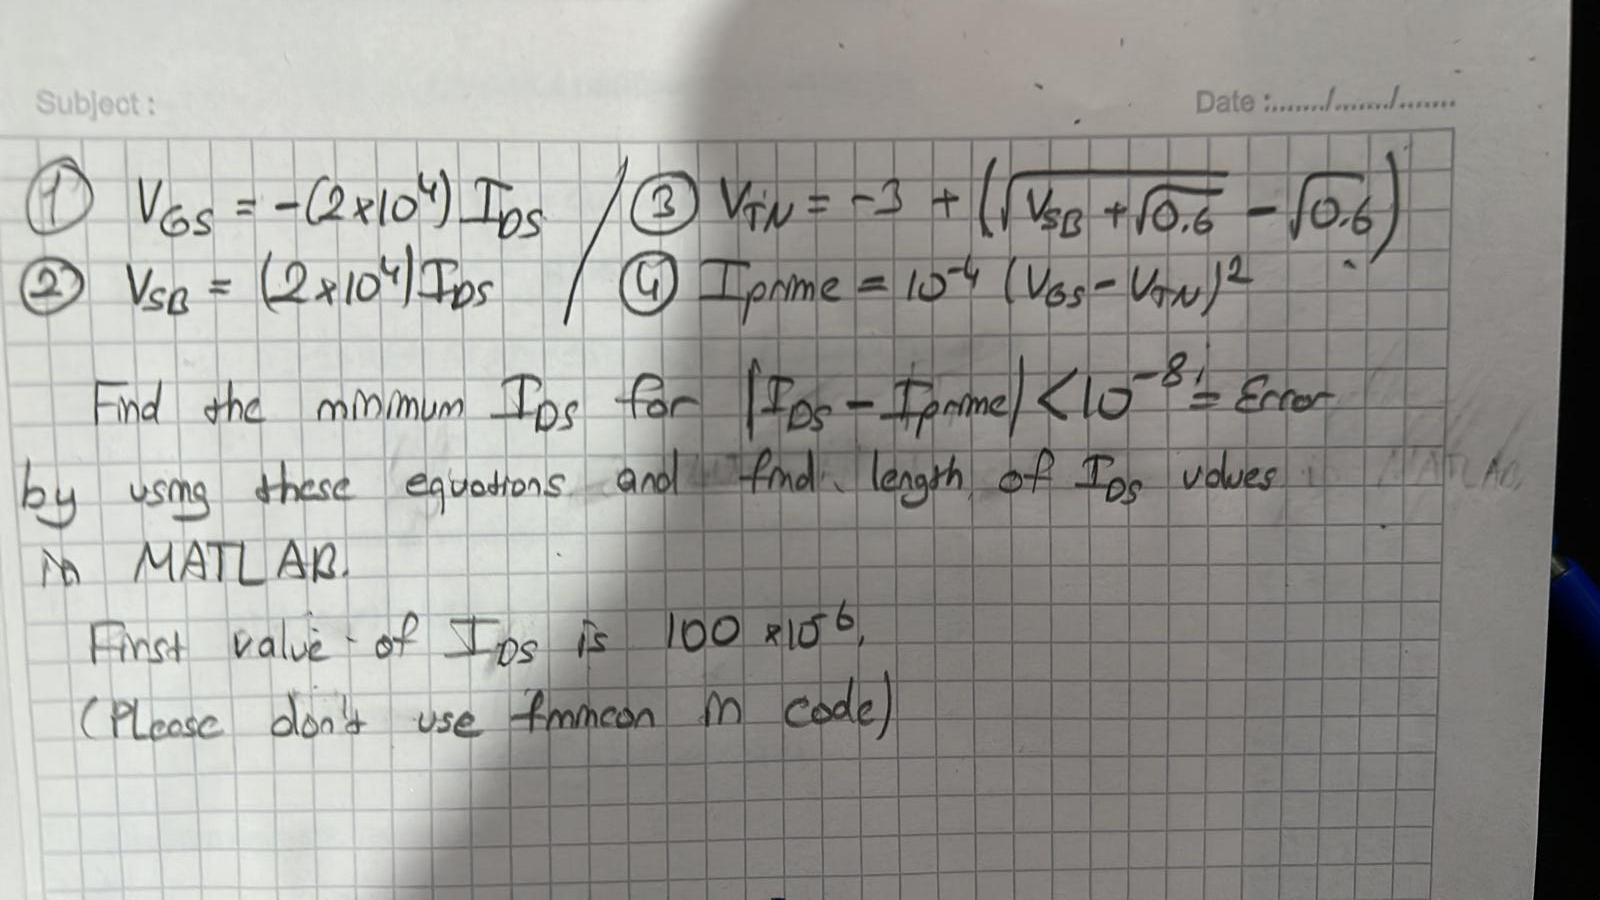 Subject :
Date :......./......./.......
① V_GS = -(2×10⁴) I_DS / ③ V_TN = -3 + (√(V_SB + √0.6) - √0.6)
② V_SB = (2×10⁴) I_DS / ④ I_prime = 10⁻⁴ (V_GS - V_TN)²
Find the minimum I_DS for |I_DS - I_prime| < 10⁻⁸ = Error
by using these equations and find length of I_DS values
in MATLAB.
First value of I_DS is 100 × 10⁻⁶.
(Please don't use fmincon in code)